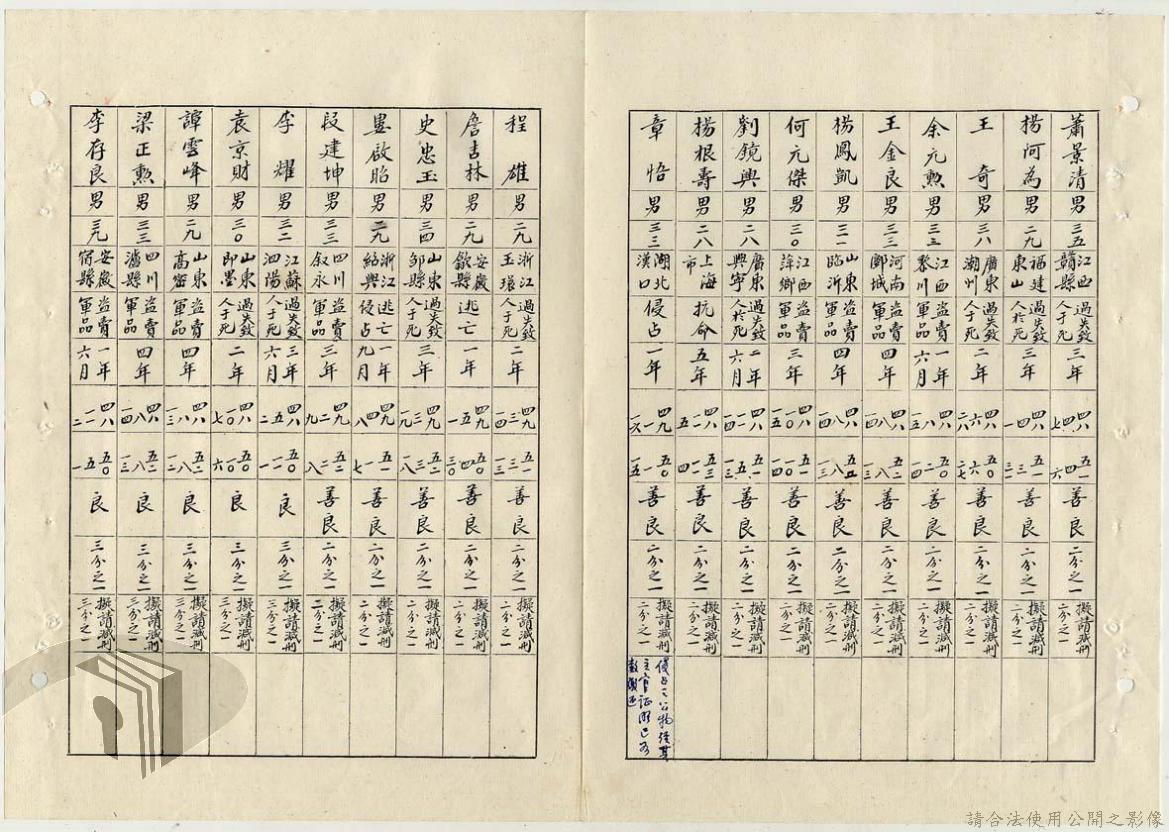 蕭景清 男 三五 江西贛縣 過失致人于死 三年 四八 四 七 五一 四 六 善良 二分之一 擬請減刑二分之一
楊阿為 男 二九 福建東山 過失致人於死 三年 四八 四 一 五一 三 三一 善良 二分之一 擬請減刑二分之一
王奇 男 三八 廣東潮州 過失致人于死 二年 四八 六 二八 五〇 六 二七 善良 二分之一 擬請減刑二分之一
余元勲 男 三三 江西黎川 盜賣軍品 一年六月 四八 八 一五 五〇 二 一四 善良 二分之一 擬請減刑二分之一
王金良 男 三三 河南郾城 盜賣軍品 四年 四八 八 一四 五二 八 一三 善良 二分之一 擬請減刑二分之一
楊鳳凱 男 三一 山東臨沂 盜賣軍品 四年 四八 八 一四 五二 八 一三 善良 二分之一 擬請減刑二分之一
何元傑 男 三〇 江西萍鄉 盜賣軍品 三年 四八 一〇 一五 五一 一〇 一四 善良 二分之一 擬請減刑二分之一
劉鏡興 男 二八 廣東興寧 過失致人於死 二年六月 四八 一一 一四 五一 五 一三 善良 二分之一 擬請減刑二分之一
楊根壽 男 二八 上海市 抗命 五年 四八 一二 五 五三 一二 四 善良 二分之一 擬請減刑二分之一
章悟 男 三三 湖北漢口 侵占 一年 四九 一 一六 五〇 一 一五 善良 二分之一 擬請減刑二分之一 侵占之公物經其主官証明已如數繳還
程雄 男 二九 浙江玉環 過失致人于死 二年 四九 三 一四 五一 三 一三 善良 二分之一 擬請減刑二分之一
詹吉林 男 二九 安徽歙縣 逃亡 一年 四九 五 一 五〇 四 三〇 善良 二分之一 擬請減刑二分之一
史忠玉 男 三四 山東鄒縣 過失致人于死 三年 四九 三 一九 五二 三 一八 善良 二分之一 擬請減刑二分之一
啟昭 男 二九 浙江紹興 逃亡侵占 一年九月 四九 四 八 五一 一 七 善良 二分之一 擬請減刑二分之一
段建坤 男 三三 四川叙永 盜賣軍品 三年 四九 二 九 五二 二 八 善良 二分之一 擬請減刑二分之一
李耀 男 三二 江蘇泗陽 過失致人于死 三年六月 四八 五 二 五〇 一一 一 良 三分之一 擬請減刑三分之一
袁京財 男 三〇 山東即墨 過失致人于死 二年 四八 一〇 七 五〇 一〇 六 良 三分之一 擬請減刑三分之一
譚雲峰 男 二九 山東高密 盜賣軍品 四年 四八 八 一三 五二 八 一二 良 三分之一 擬請減刑三分之一
梁正勲 男 三三 四川瀘縣 盜賣軍品 四年 四八 八 一四 五二 八 一三 良 三分之一 擬請減刑三分之一
李存良 男 三九 安徽宿縣 盜賣軍品 一年六月 四八 一一 二 五〇 五 一 良 三分之一 擬請減刑三分之一
請合法使用公開之影像